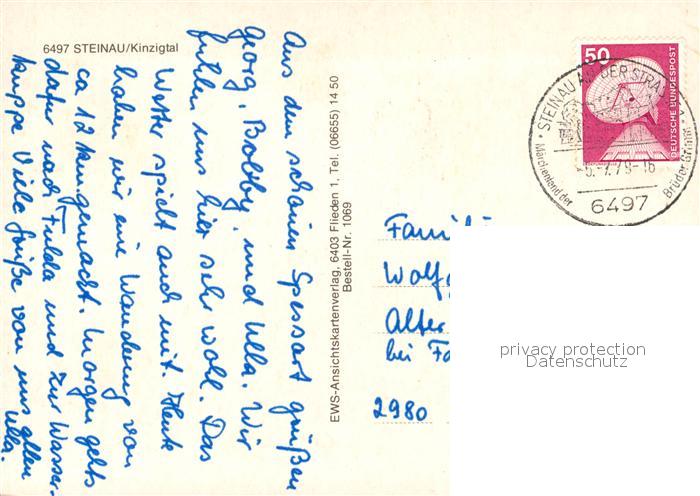 6497 STEINAU/Kinzigtal
Aus dem schönen Spessart grüßen
Georg, Bobby, und Ulla. Wir
fühlen uns hier sehr wohl. Das
Wetter spielt auch mit. Heute
haben wir eine Wanderung von
ca 12 km. gemacht. Morgen gehts
dafür nach Fulda und zur Wasser-
kuppe Viele Grüße von uns allen
Ulla.
EWS-Ansichtskartenverlag, 6403 Flieden 1, Tel. (06655) 14 50
Bestell-Nr. 1069
50
DEUTSCHE BUNDESPOST
STEINAU AN DER STRA
-5.-7.79-16
6497
Märchenland der
Brüder Grimm
Famili
Wolfg
Alter
bei Fa
2980
privacy protection
Datenschutz